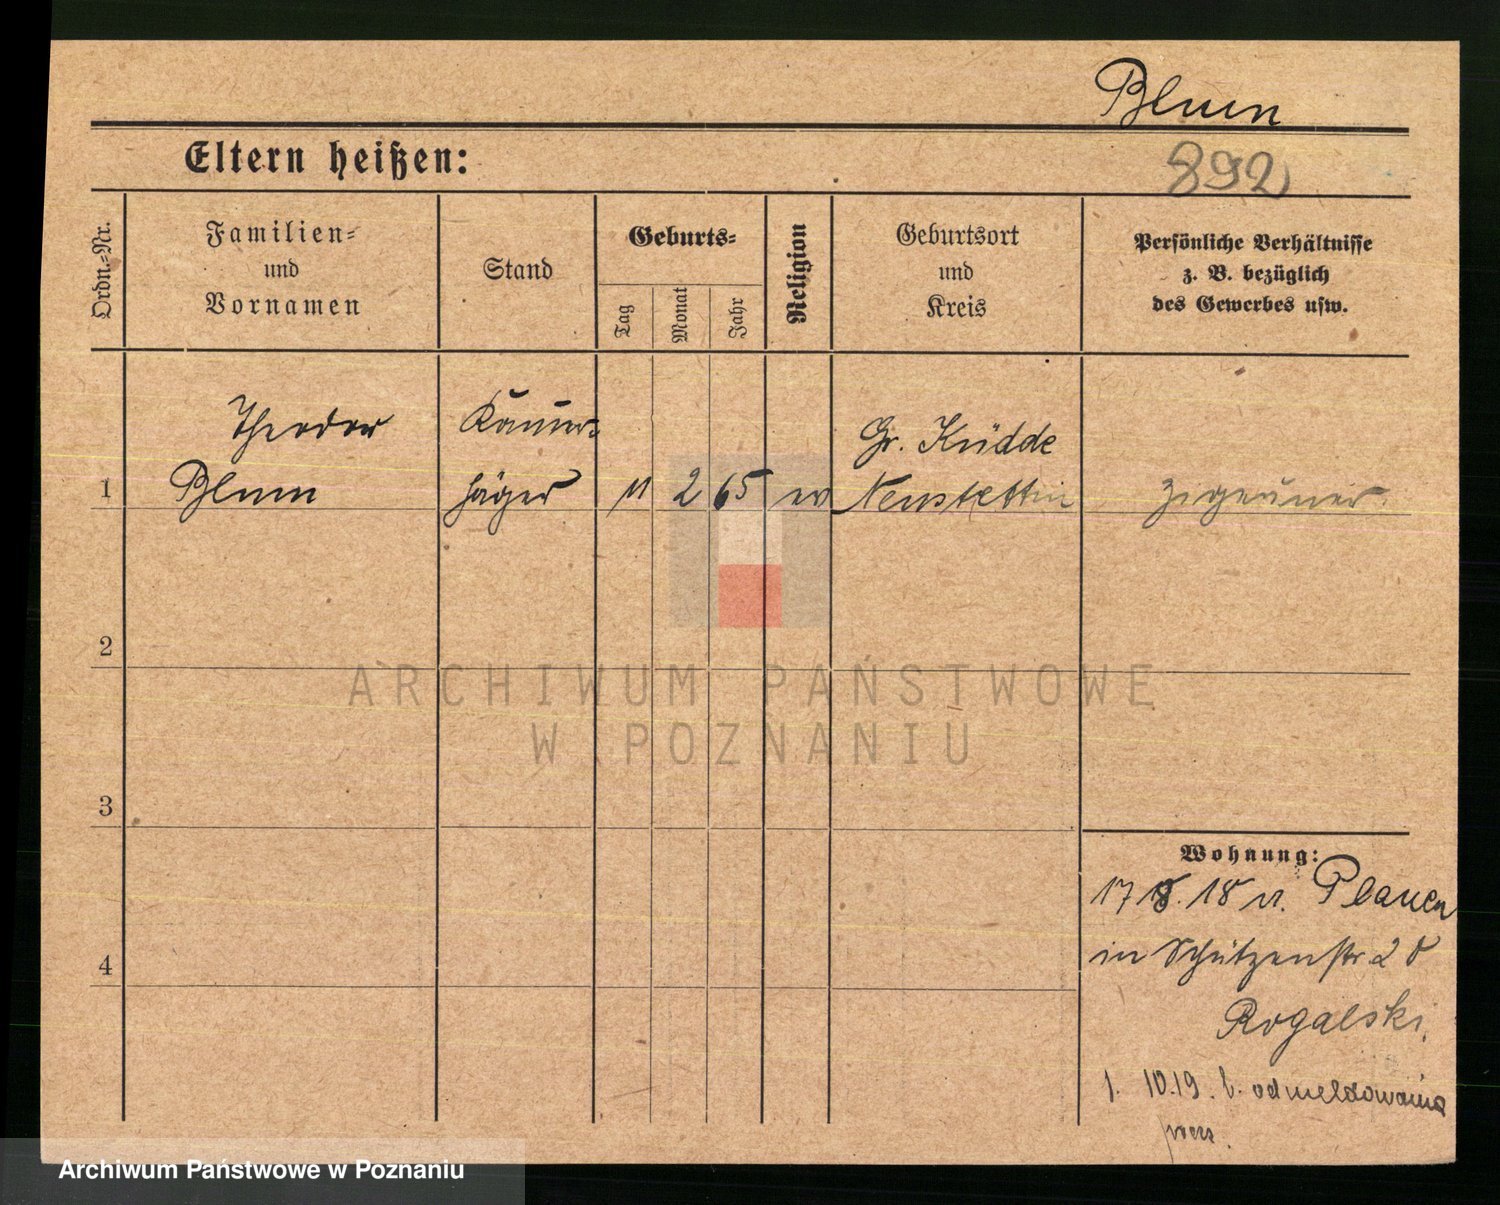 Blum
Eltern heißen:
892
Ordn.-Nr.
Familien-
und
Vornamen
Stand
Geburts-
Tag
Monat
Jahr
Religion
Geburtsort
und
Kreis
Persönliche Verhältnisse
z. B. bezüglich
des Gewerbes usw.
Theodor
Blum
Kammer-
jäger
11
2
65
ev
Gr. Küdde
Neustettin
Zigeuner.
1
2
3
4
Wohnung:
17 8. 18 v. Plauen
in Schützenstr 28
Rogalski.
1. 10.19. b. odmeldowania
ARCHIWUM PAŃSTWOWE
W POZNANIU
Archiwum Państwowe w Poznaniu